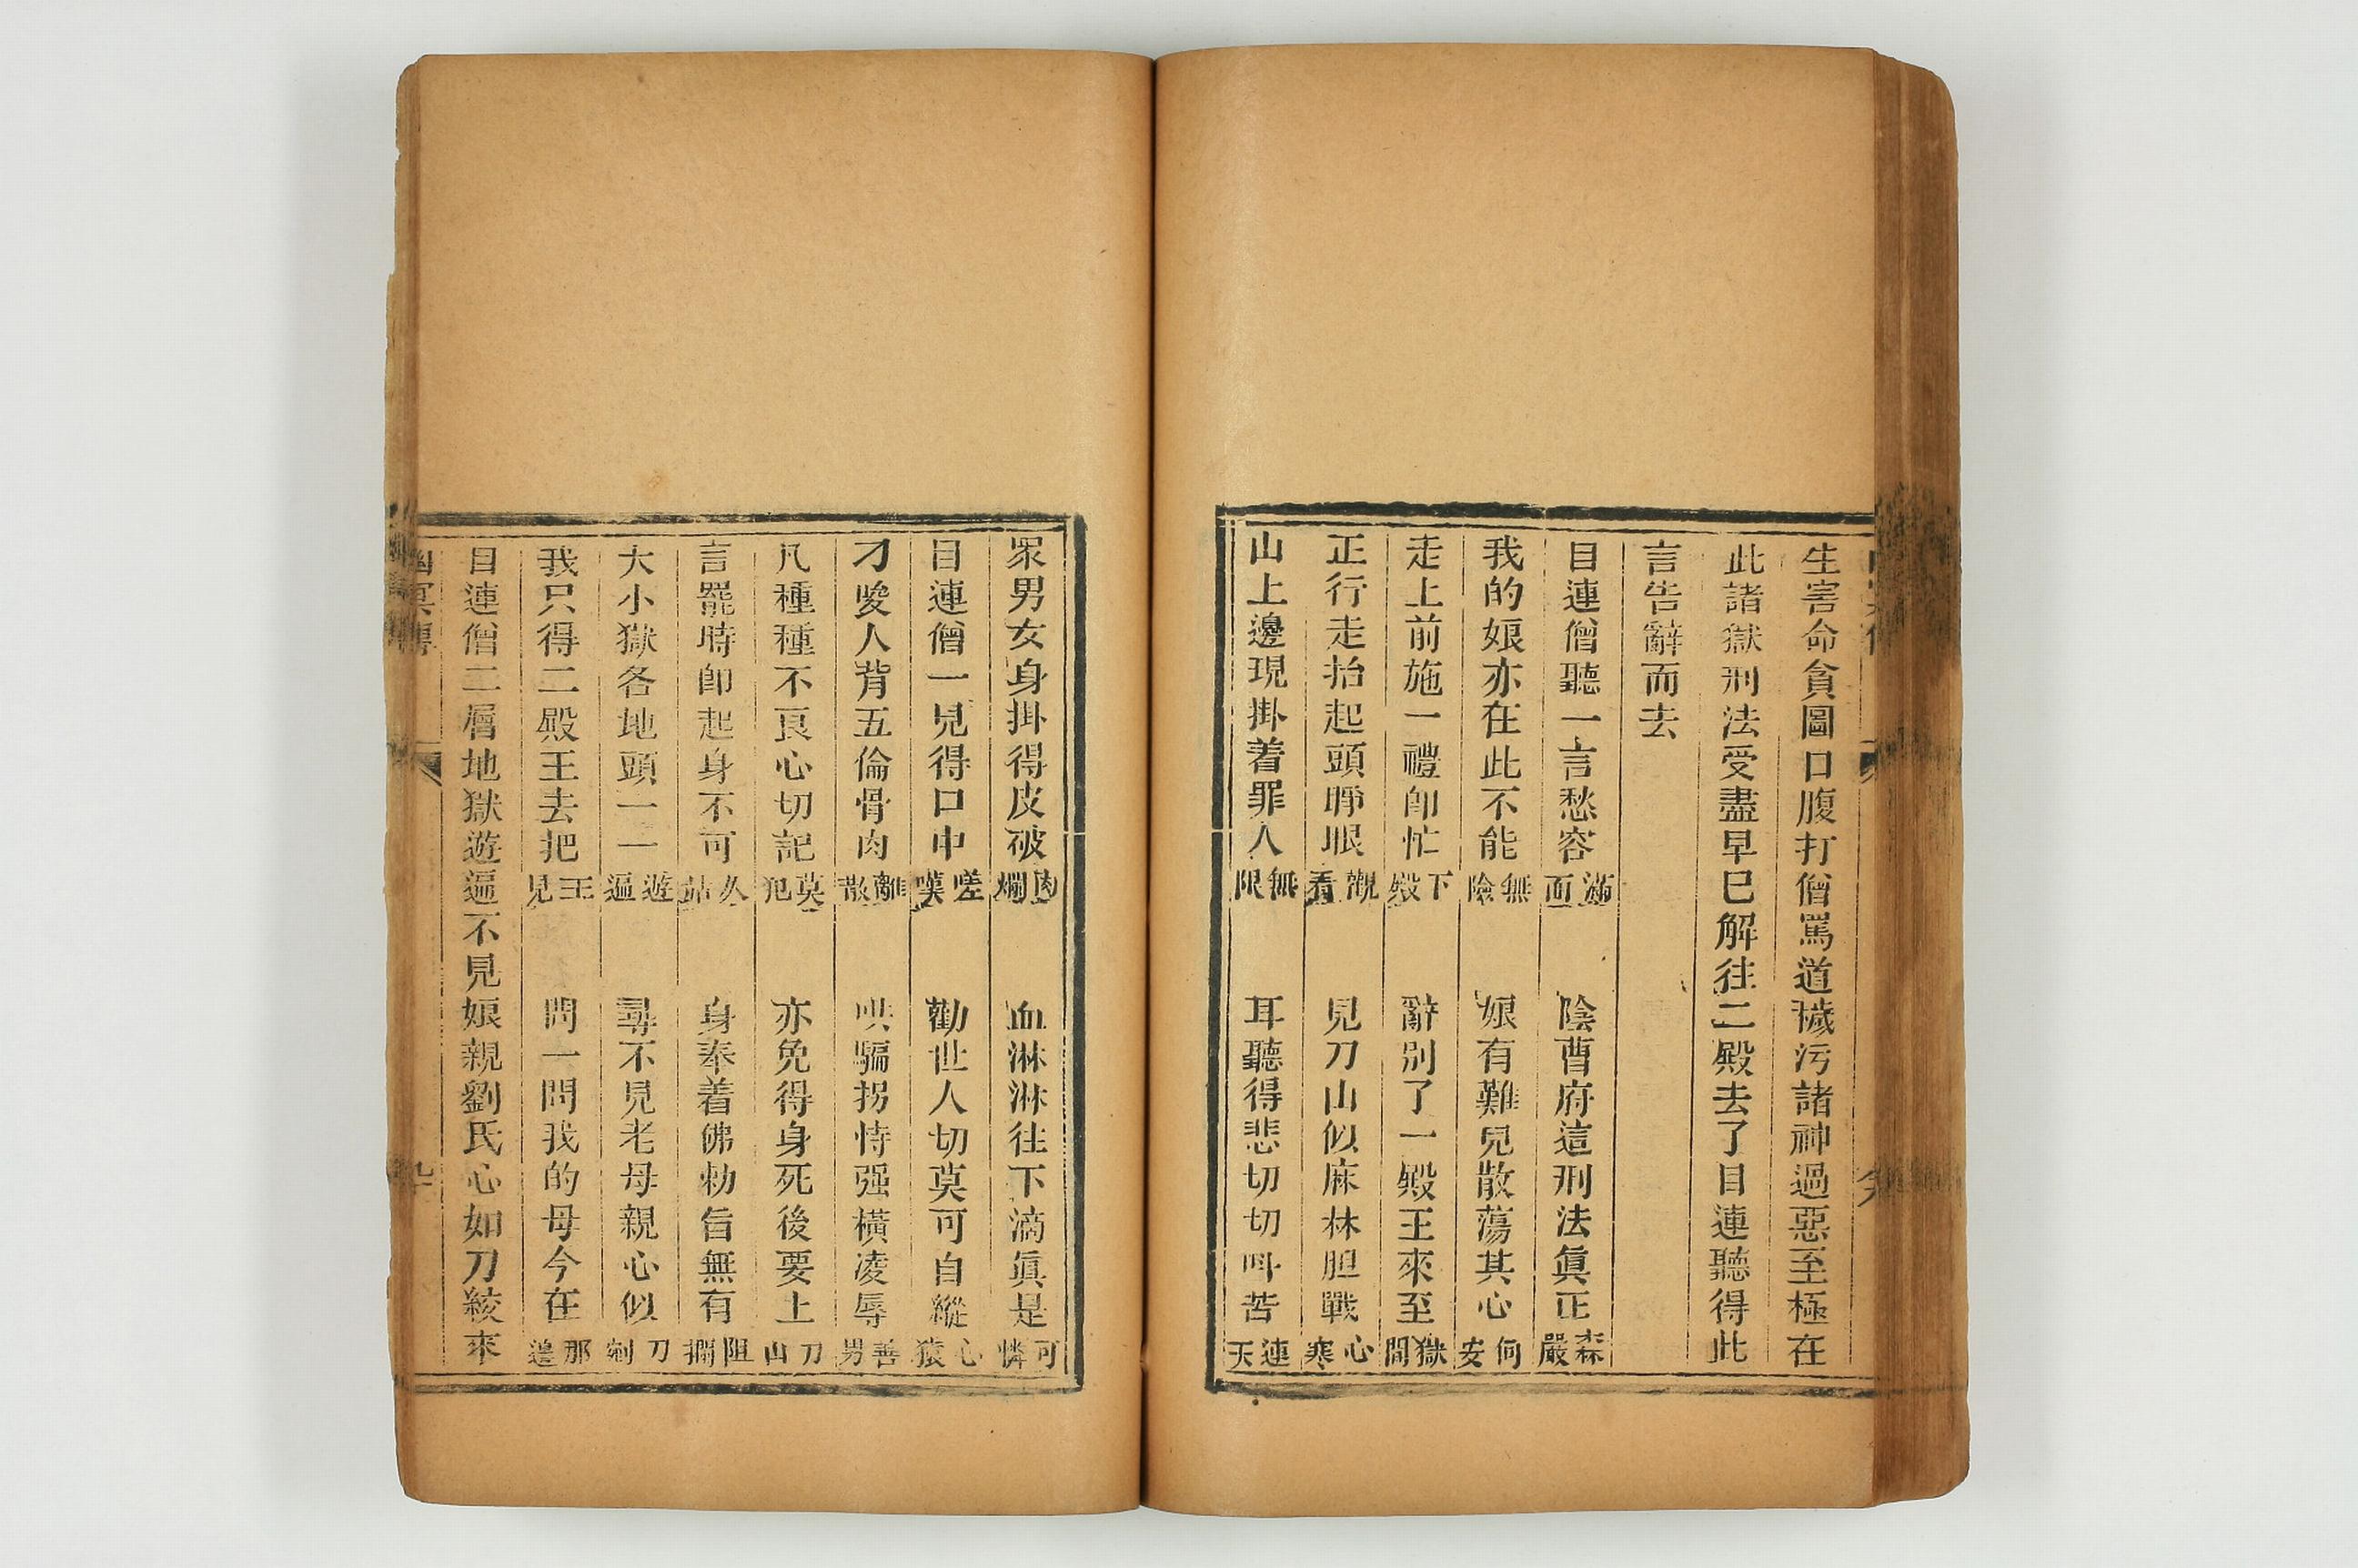 生害命貪圖口腹打僧罵道穢污諸神過惡至極在
此諸獄刑法受盡早已解往二殿去了目連聽得此
言告辭而去
目連僧聽一言愁容滿面 陰曹府這刑法眞正森嚴
我的娘亦在此不能無陰 娘有難兒散蕩其心何安
走上前施一禮卽忙下殿 辭別了一殿王來至獄間
正行走抬起頭睜眼觀看 見刀山似麻林胆戰心寒
山上邊現掛着罪人無限 耳聽得悲切切呌苦連天
衆男女身掛得皮破肉爛 血淋淋往下滴眞是可憐
目連僧一見得口中嗟嘆 勸世人切莫可自縱心猿
刁唆人背五倫骨肉離散 哄騙拐恃强橫凌辱善男
凡種種不良心切記莫犯 亦免得身死後要上刀山
言罷時卽起身不可久站 身奉着佛勅旨無有阻攔
大小獄各地頭一一遊遍 尋不見老母親心似刀剜
我只得二殿王去把王見 問一問我的母今在那邉
目連僧二層地獄遊遍不見娘親劉氏心如刀絞來
幽冥傳